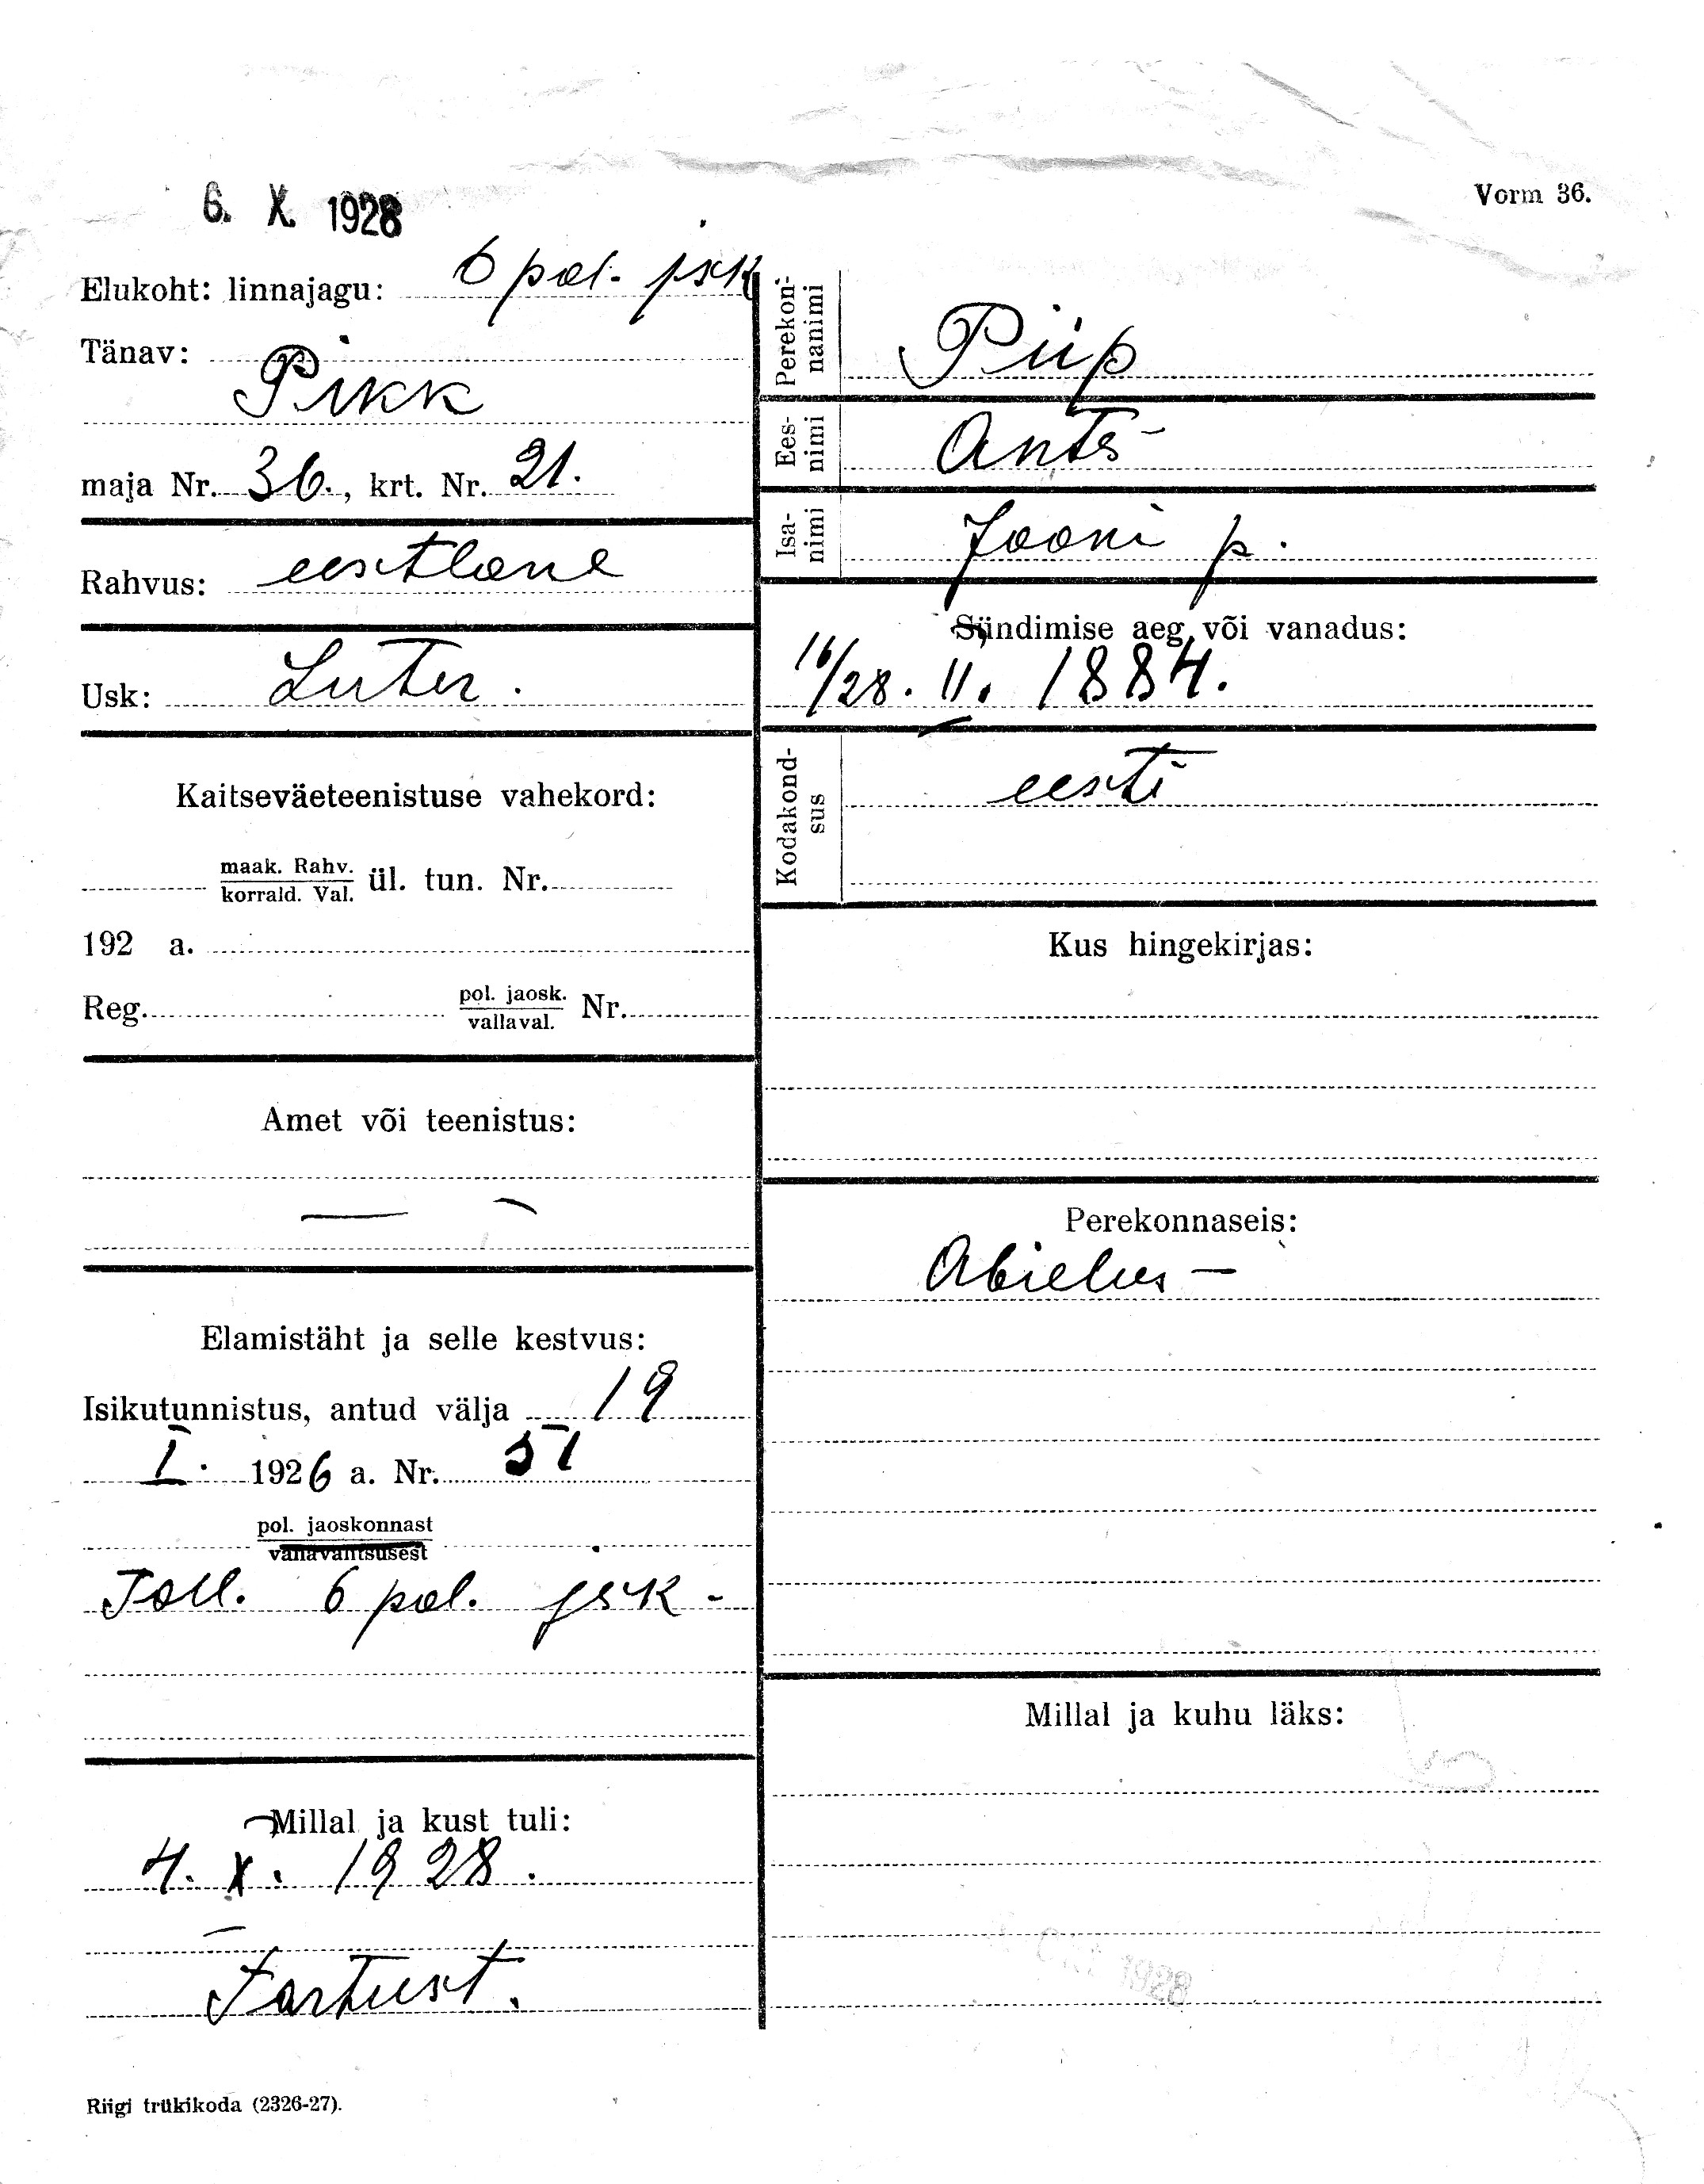 6. X. 1928
Vorm 36.
Elukoht: linnajagu: 6 pol. jsk
Tänav:
Pikk
maja Nr. 36., krt. Nr. 21.
Rahvus: eestlane
Usk: Luter.
Kaitseväeteenistuse vahekord:
maak. Rahv.
korrald. Val. ül. tun. Nr.
192 a.
Reg. pol. jaosk. Nr.
vallaval.
Amet või teenistus:
—
Elamistäht ja selle kestvus:
Isikutunnistus, antud välja 19
I. 1926 a. Nr. 51
pol. jaoskonnast
vallavalitsusest
Tall. 6 pol. jsk -
Millal ja kust tuli:
4. X. 1928.
Tartust.
Perekon-
nanimi Piip
Ees-
nimi Ants
Isa-
nimi Jaani p.
Sündimise aeg või vanadus:
16/28. II. 1884.
Kodakond-
sus eesti
Kus hingekirjas:
Perekonnaseis:
Abielus —
Millal ja kuhu läks:
OKT 1928
Riigi trükikoda (2326-27).